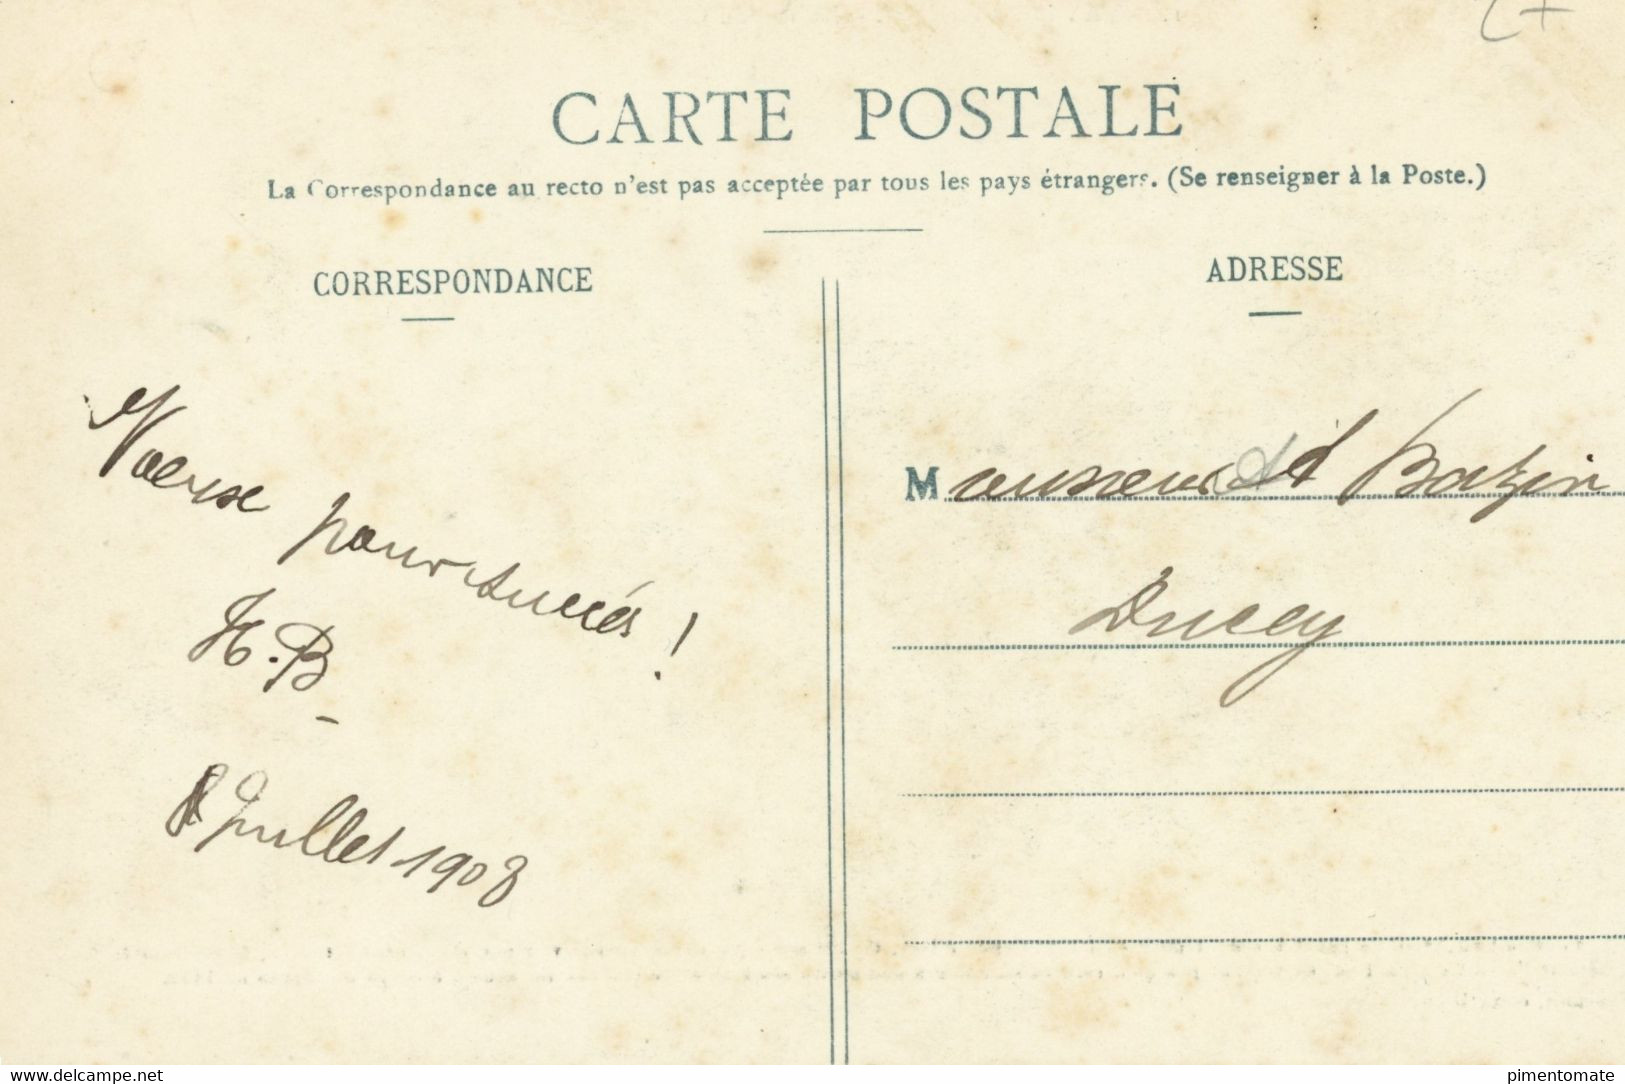 CARTE POSTALE
La Correspondance au recto n'est pas acceptée par tous les pays étrangers. (Se renseigner à la Poste.)
CORRESPONDANCE
pour succès !
H. B
8 Juillet 1908
ADRESSE
Monsieur A Bazin
Ducey
www.delcampe.net
pimentomate